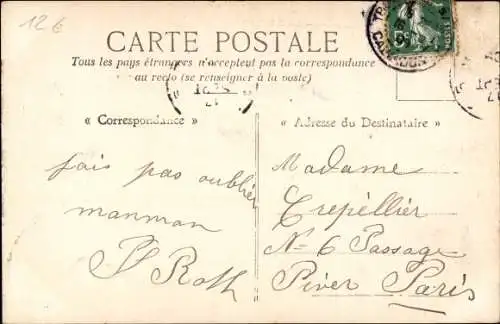 12€
CARTE POSTALE
Tous les pays étrangers n'acceptent pas la correspondance
au recto (se renseigner à la poste)
« Correspondance »
« Adresse du Destinataire »
fais pas oublier
manman
P Roth
Madame
Crepéllier
N- 6 Passage
Piver Paris